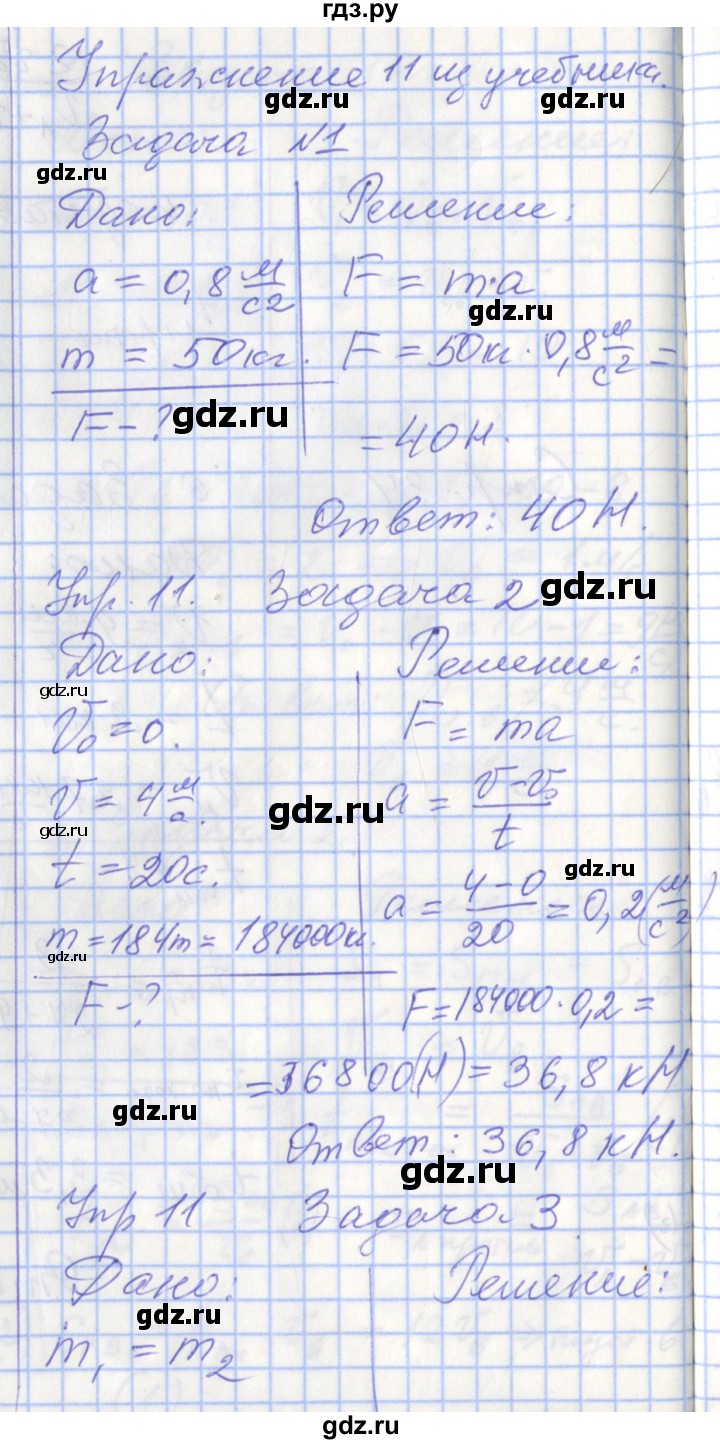 гдз.ру
Упражнение 11 из учебника.
gdz.ru gdz.ru
Задача №1
gdz.ru
Дано: Решение:
a = 0,8 м/с2 F = m·a
gdz.ru
m = 50кг. F = 50кг · 0,8 м/с2 =
F - ? = 40Н.
gdz.ru
Ответ: 40Н.
Упр. 11. Задача 2
gdz.ru
Дано: Решение:
gdz.ru
V₀ = 0. F = ma
V = 4 м/с. a = V-V₀/t
gdz.ru gdz.ru
t = 20с.
gdz.ru
a = 4-0/20 = 0,2(м/с2)
m = 184т = 184000кг.
gdz.ru
F - ? F = 184000 · 0,2 =
= 36800(Н) = 36,8 кН
gdz.ru
Ответ: 36,8 кН.
gdz.ru
Упр 11 Задача 3
Дано: Решение:
gdz.ru
m₁ = m₂
gdz.ru